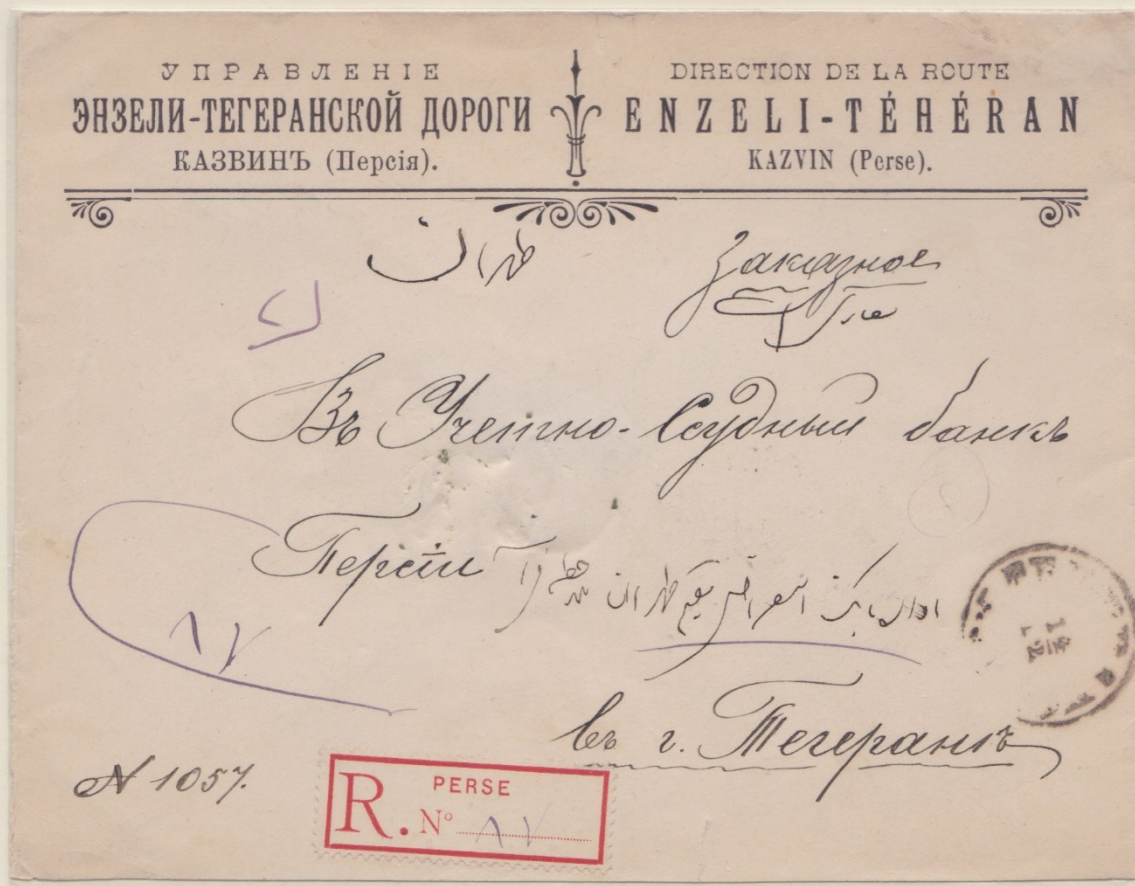 УПРАВЛЕНІЕ
ЭНЗЕЛИ-ТЕГЕРАНСКОЙ ДОРОГИ
КАЗВИНЪ (Персія).
DIRECTION DE LA ROUTE
ENZELI-TÉHÉRAN
KAZVIN (Perse).
طهران
Заказное
Въ Учетно-Ссудный банкъ
Персіи
въ г. Тегеранѣ
N 1057.
PERSE
R. Nº ٨٧
٨٧